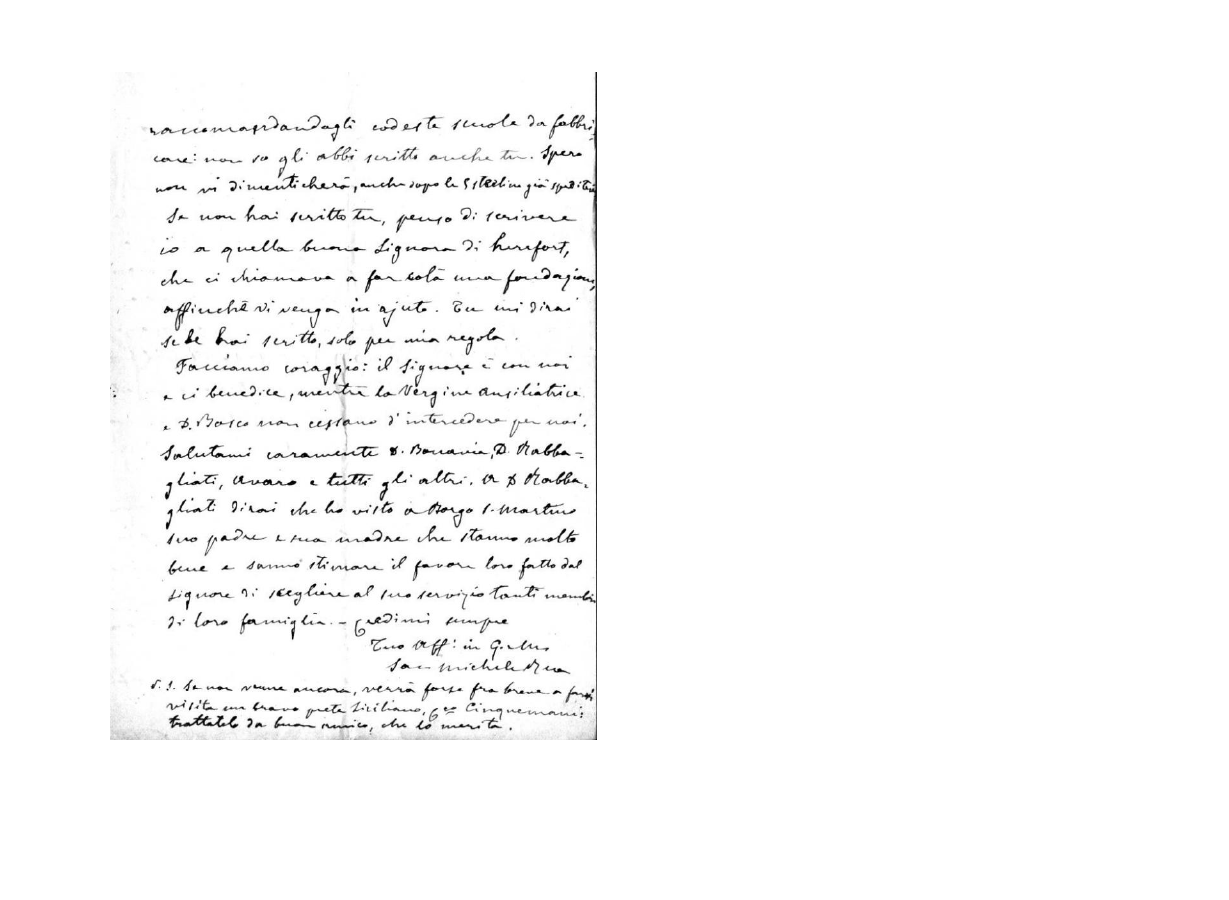 raccomandandagli codeste scuole da fabbri-
care: non so gli abbi scritto anche tu. Spero
non vi dimenticherà, anche dopo le 5 sterline già spedite
Se non hai scritto tu, penso di scrivere
io a quella buona Signora di herefort,
che ci chiamava a far colà una fondazione,
affinchè vi venga in ajuto. Tu mi dirai
se le hai scritto, solo per mia regola.
Facciamo coraggio: il Signore è con noi
e ci benedice, mentre la Vergine Ausiliatrice
e D. Bosco non cessano d'intercedere per noi.
Salutami caramente D. Bonavia, D. Rabba=
gliati, Avaro e tutti gli altri. A D Rabba=
gliati dirai che ho visto a Borgo S. Martino
suo padre e sua madre che stanno molto
bene e sanno stimare il favore loro fatto dal
Signore di scegliere al suo servizio tanti membri
di loro famiglia. - Credimi sempre
Tuo Aff. in G. e M.
Sac. Michele Rua
P. S. Se non venne ancora, verrà forse fra breve a farvi
visita un bravo prete Siciliano, Cinquemani:
trattatelo da buon amico, che lo merita.